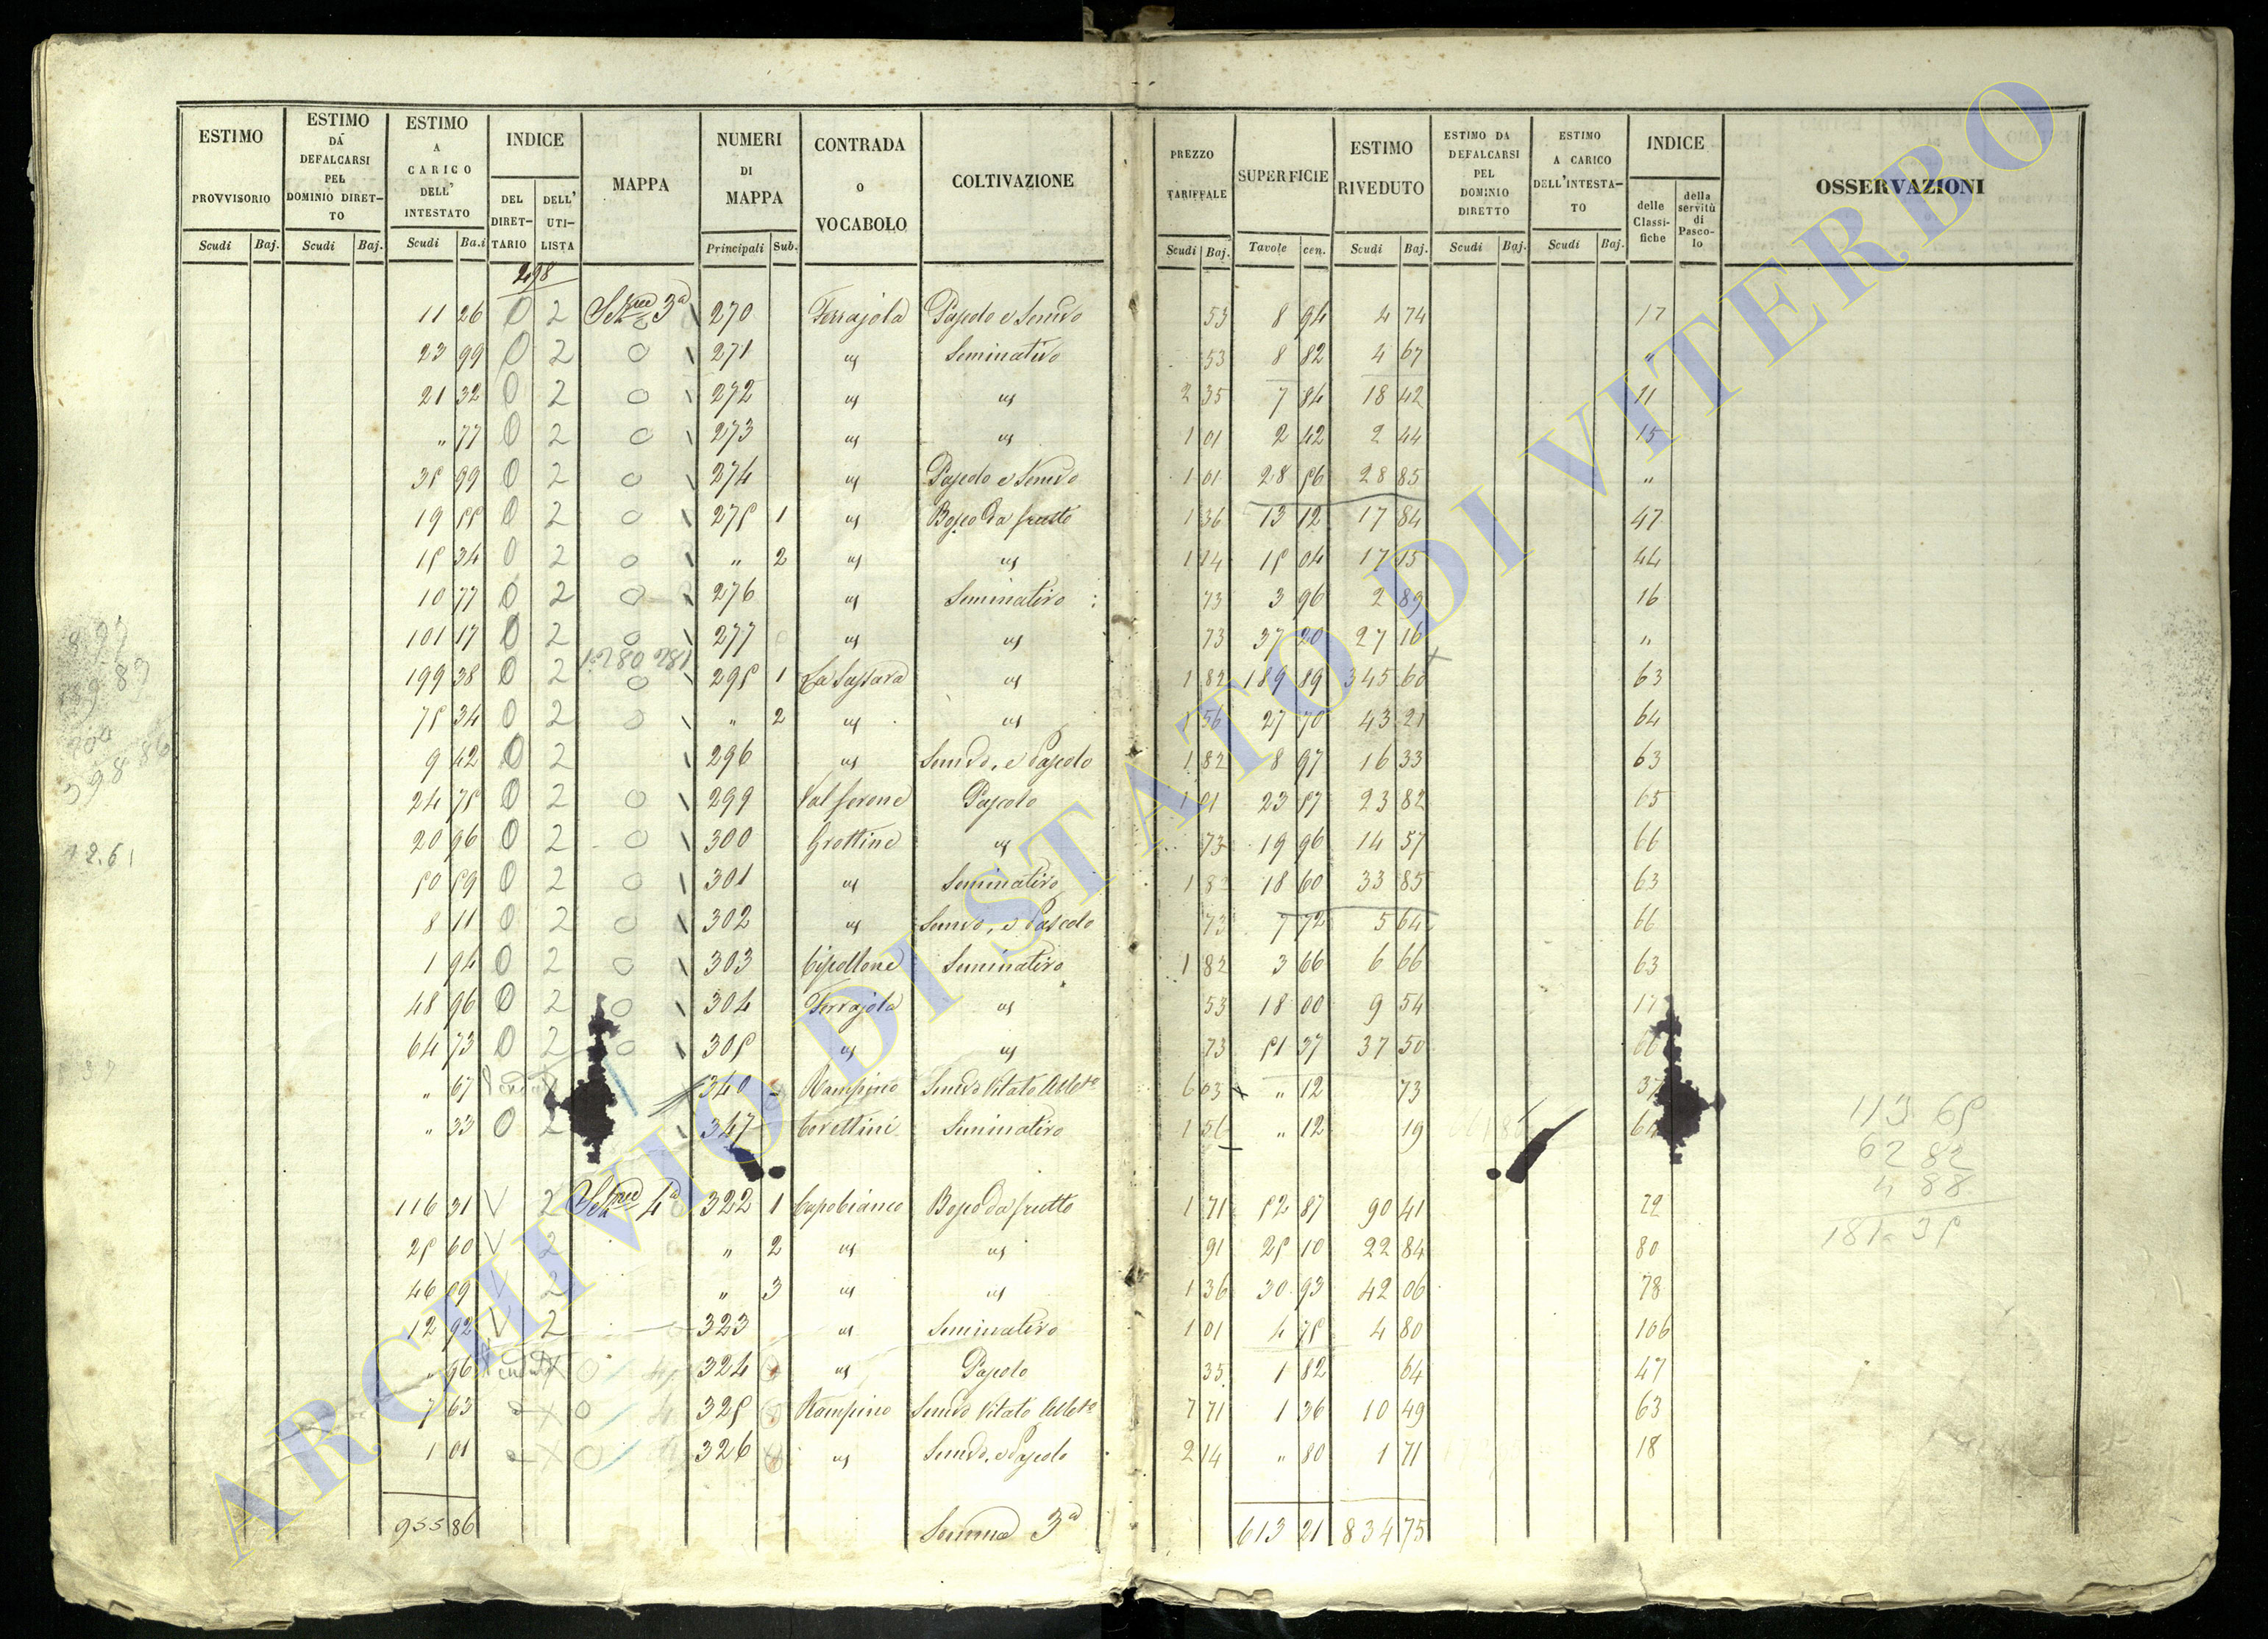 ESTIMO PROVVISORIO
Scudi Baj.
ESTIMO DA DEFALCARSI PEL DOMINIO DIRET-TO
Scudi Baj.
ESTIMO A CARICO DELL' INTESTATO
Scudi Ba.i
INDICE
DEL DIRET-TARIO
DELL' UTI-LISTA
MAPPA
NUMERI DI MAPPA
Principali Sub.
CONTRADA o VOCABOLO
COLTIVAZIONE
PREZZO TARIFFALE
Scudi Baj.
SUPERFICIE
Tavole cen.
ESTIMO RIVEDUTO
Scudi Baj.
ESTIMO DA DEFALCARSI PEL DOMINIO DIRETTO
Scudi Baj.
ESTIMO A CARICO DELL'INTESTA-TO
Scudi Baj.
INDICE
delle Classi-fiche
della servitù di Pasco-lo
OSSERVAZIONI
11 26 0 2 3ª 270 Ferrajola 53 8 94 4 74 17
23 99 0 2 0 271 " Seminativo 53 8 82 4 67 "
21 32 0 2 0 272 " " 2 35 7 84 18 42 11
" 77 0 2 0 273 " " 1 01 2 42 2 44 15
35 99 0 2 0 274 " 1 01 28 56 28 85 "
19 55 0 2 0 275 1 " Bosco da frutto 1 36 13 12 17 84 47
15 34 0 2 0 " 2 " " 1 14 15 04 17 15 44
10 77 0 2 0 276 " Seminativo 73 3 96 2 89 16
101 17 0 2 0 277 " " 73 37 20 27 16 "
280 281
199 38 0 2 0 295 1 " 1 82 189 89 345 60 63
75 34 0 2 0 " 2 " " 1 56 27 70 43 21 64
9 42 0 2 296 " Semvo, e Pascolo 1 82 8 97 16 33 63
24 75 0 2 0 299 Pascolo 1 01 23 57 23 82 65
20 96 0 2 0 300 Grottine " 73 19 96 14 57 66
50 59 0 2 0 301 " Seminativo 1 82 18 60 33 85 63
8 11 0 2 0 302 " Semvo, e Pascolo 73 7 72 5 64 66
1 94 0 2 0 303 Cipollone Seminativo 1 82 3 66 6 66 63
48 96 0 2 0 304 Ferrajola " 53 18 00 9 54 17
64 73 0 2 0 305 " " 73 51 37 37 50
" 67 340 Rampino 6 03 " 12 73 37
" 33 0 2 347 Corettini Seminativo " 12 19
116 31 V 2 4ª 322 1 Capobianco Bosco da frutto 1 71 52 87 90 41
25 60 V 2 " 2 " " 91 25 10 22 84 80
46 09 V 2 " 3 " " 1 36 30 93 42 06 78
12 92 V 2 323 " Seminativo 1 01 4 75 4 80 106
" 96 0 324 " Pascolo 35 1 82 64 47
7 63 0 325 Rampino 7 71 1 36 10 49 63
1 01 0 326 " Semvo, e Pascolo 2 14 " 80 1 71 18
955 86 Somma 3ª 613 21 834 75
113 65
62 82
4 88
181 35
ARCHIVIO DI STATO DI VITERBO